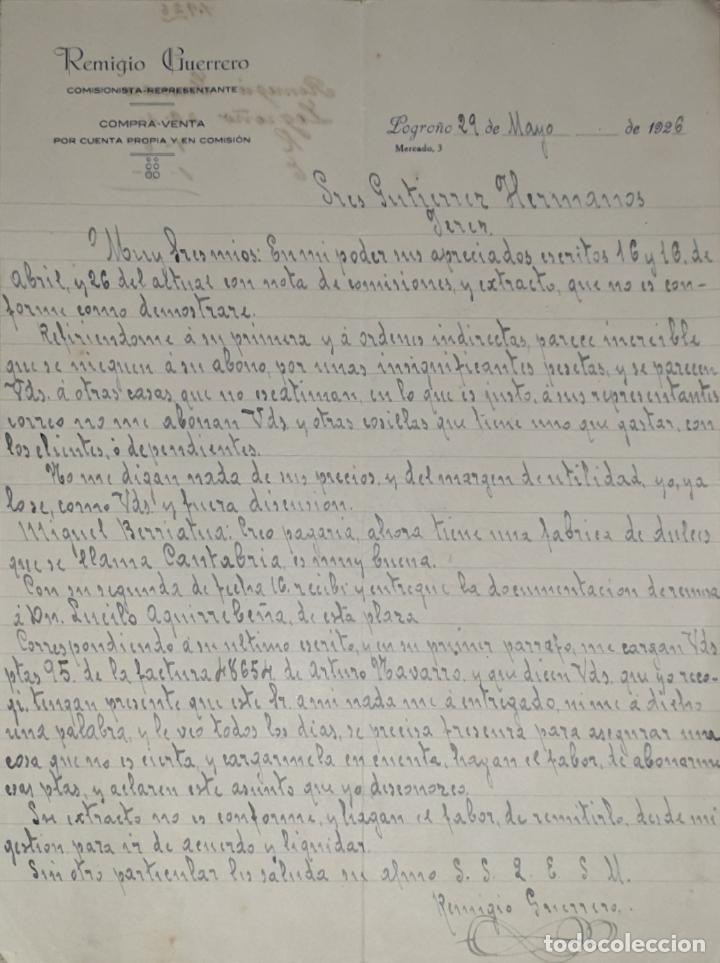 1926
Remigio Guerrero
COMISIONISTA-REPRESENTANTE
COMPRA-VENTA
POR CUENTA PROPIA Y EN COMISIÓN
Logroño 29 de Mayo de 1926
Mercado, 3
Sres Gutierrez Hermanos
Jerez
Muy Sres mios: En mi poder sus apreciados escritos 16 y 16, de
abril, y 26 del actual con nota de comisiones, y extracto, que no es con-
forme como demostrare.
Refiriendome á su primera y á ordenes indirectas, parece increible
que se nieguen á su abono, por unas insignificantes pesetas, y se parecen
Vds. á otras casas, que no escatiman, en lo que es justo, á sus representantes
correo no me abonan Vds. y otras cosillas que tiene uno que gastar, con
los clientes, ó dependientes.
No me digan nada de sus precios, y del margen de utilidad, yo, ya
lo se, como Vds. y fuera discusion.
Miguel Berriatua: Creo pagaria, ahora tiene una fabrica de dulces
que se llama Cantabria, es muy buena.
Con su segunda de fecha 16, recibi y entregue la documentacion de remesa
á Dn. Lucilo Aguirrebeña, de esta plaza
Correspondiendo á su ultimo escrito, y en su primer parrafo, me cargan Vds
ptas 95. de la factura 48654 de Arturo Navarro, y que dicen Vds. que yo reco-
gi, tengan presente que este Sr. a mi nada me á entregado, ni me á dicho
una palabra, y le veo todos los dias, se precisa fresura para asegurar una
cosa que no es cierta, y cargarmela en cuenta, hagan el fabor, de abonarme
esas ptas, y aclaren este asunto que yo desconozco.
Su extracto no es conforme, y hagan el fabor, de remitirlo, desde mi
gestion para ir de acuerdo y liquidar.
Sin otro particular les saluda su afmo S. S. Q. E. S. M.
Remigio Guerrero.
todocoleccion